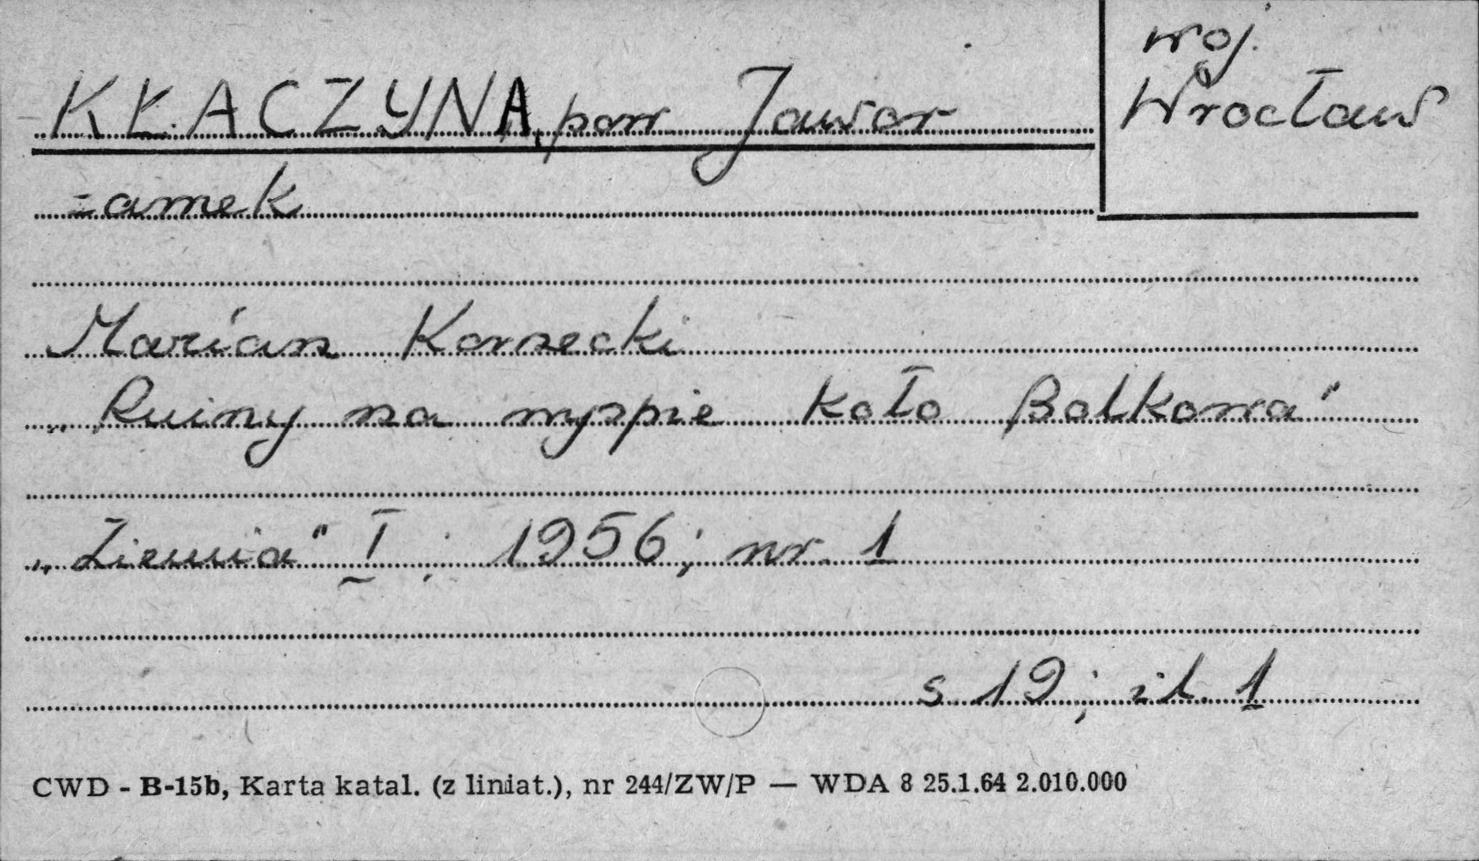 woj.
Wrocław
KŁACZYNA, pow Jawor
zamek
Marian Kornecki
„Ruiny na wyspie koło Bolkowa"
„Ziemia" I; 1956; nr. 1
s 19; il. 1
CWD - B-15b, Karta katal. (z liniat.), nr 244/ZW/P — WDA 8 25.1.64 2.010.000